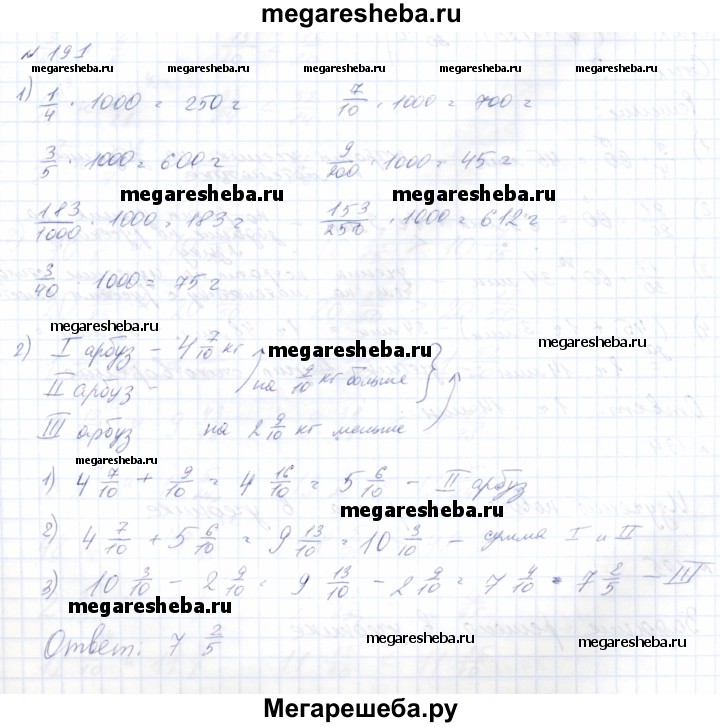 megaresheba.ru
№ 191
megaresheba.ru megaresheba.ru megaresheba.ru megaresheba.ru
1) 1/4 · 1000 = 250 г 7/10 · 1000 = 700 г
3/5 · 1000 = 600 г 9/200 · 1000 = 45 г
megaresheba.ru megaresheba.ru
183/1000 · 1000 = 183 г 153/250 · 1000 = 612 г
3/40 · 1000 = 75 г
megaresheba.ru
2) I арбуз – 4 7/10 кг
megaresheba.ru megaresheba.ru
II арбуз – на 9/10 кг больше
III арбуз на 2 9/10 кг меньше
megaresheba.ru
1) 4 7/10 + 9/10 = 4 16/10 = 5 6/10 – II арбуз
megaresheba.ru
2) 4 7/10 + 5 6/10 = 9 13/10 = 10 3/10 – сумма I и II
3) 10 3/10 – 2 9/10 = 9 13/10 – 2 9/10 = 7 4/10 = 7 2/5 – III
megaresheba.ru
Ответ: 7 2/5
megaresheba.ru megaresheba.ru
Мегарешеба.ру